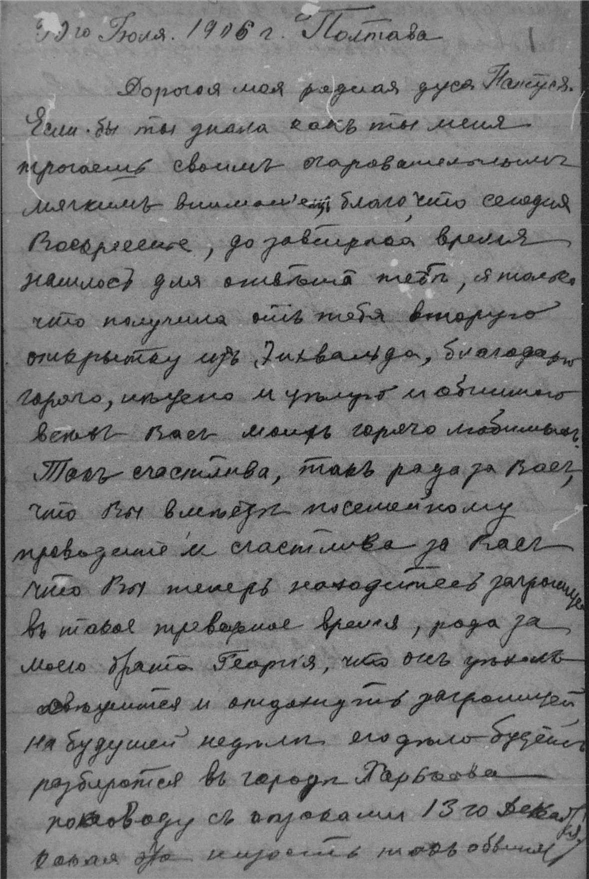 го Июля. 1906 г. Полтава
Дорогая моя родная дуся
Если бы ты знала какъ ты меня
трогаешь своимъ очаровательнымъ
мягкимъ благо что сегодня
Воскресенье, до завтрака время
нашлось для отвѣта тебѣ, я только
что получила отъ тебя вторую
открытку изъ благодарю
горячо, цѣлую и обнимаю
всѣхъ Васъ моихъ горячо любимыхъ.
Такъ счастлива, такъ рада за Васъ,
что Вы вмѣстѣ посемейному
проводите и счастлива за Васъ
что Вы теперь находитесь заграницей
въ такое тревожное время, рада за
моего брата Георгія, что онъ уѣхалъ
и отдохнуть заграницей
на будущей недѣлѣ его дѣло будетъ
разбиратся въ городѣ
поповоду съ 13 го Декаб
какая это такъ